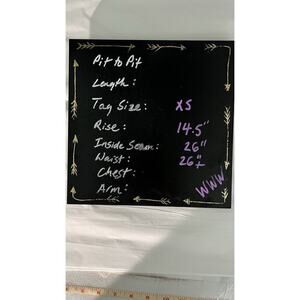 Pit to Pit
Length:
Tag Size: XS
Rise: 14.5"
Inside Seam: 26"
Waist: 26"+
Chest:
Arm:
WWW